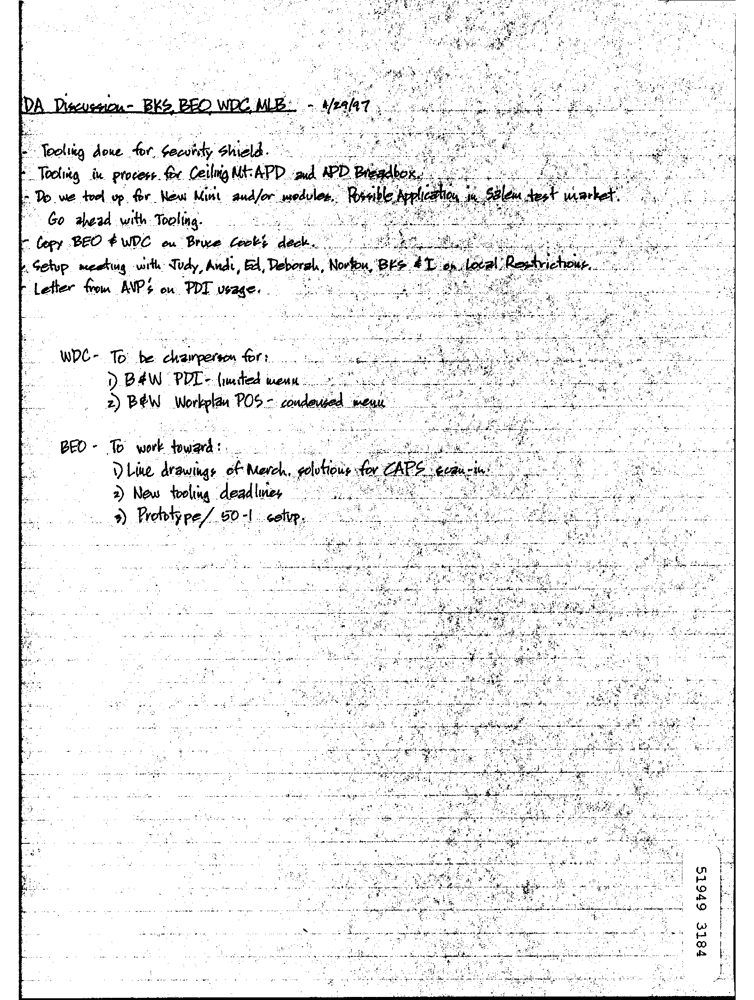 DA Discussion - BKS, BEO, WDC, MLB - 4/29/97
- Tooling done for Security Shield.
- Tooling in process for Ceiling Mt. APD and APD Breadbox.
- Do we tool up for New Mini and/or modules. Possible Application in Salem test market.
Go ahead with Tooling.
- Copy BEO & WDC on Bruce Cook's deck.
- Setup meeting with Judy, Andi, Ed, Deborah, Norton, BKS & I on Local Restrictions.
- Letter from AVP's on PDI usage.
WDC - To be chairperson for:
1) B&W PDI - limited menu
2) B&W Workplan POS - condensed menu
BEO - To work toward:
1) Line drawings of Merch. solutions for CAPS scan-in.
2) New tooling deadlines
3) Prototype / 50-1 setup.
51949 3184